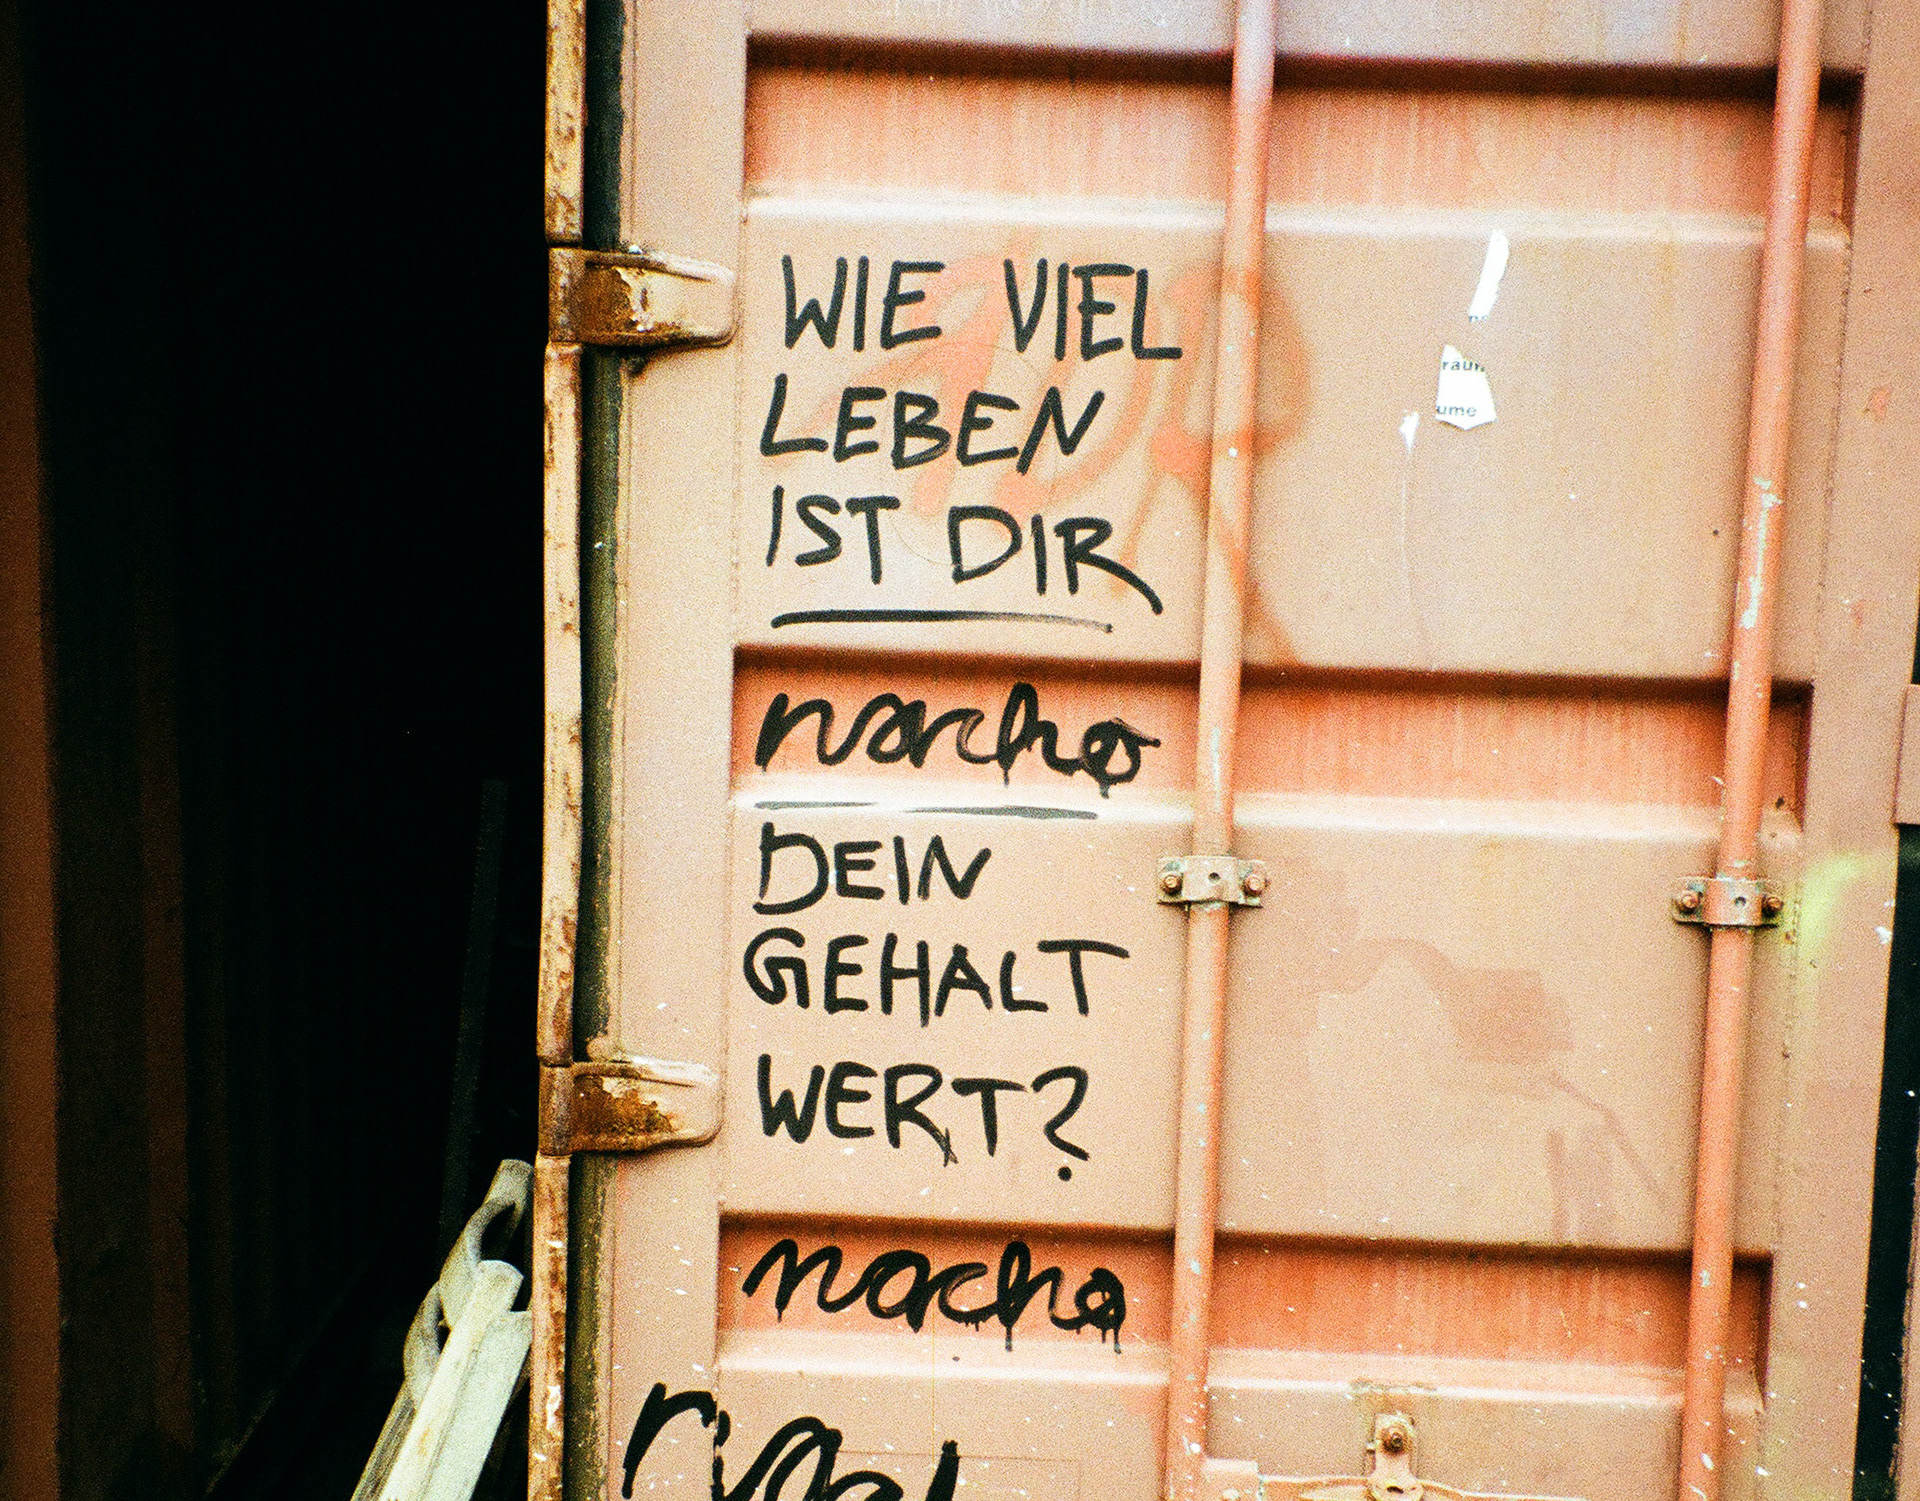 WIE VIEL
LEBEN
IST DIR
nacho
DEIN
GEHALT
WERT?
nacho
raum
ume